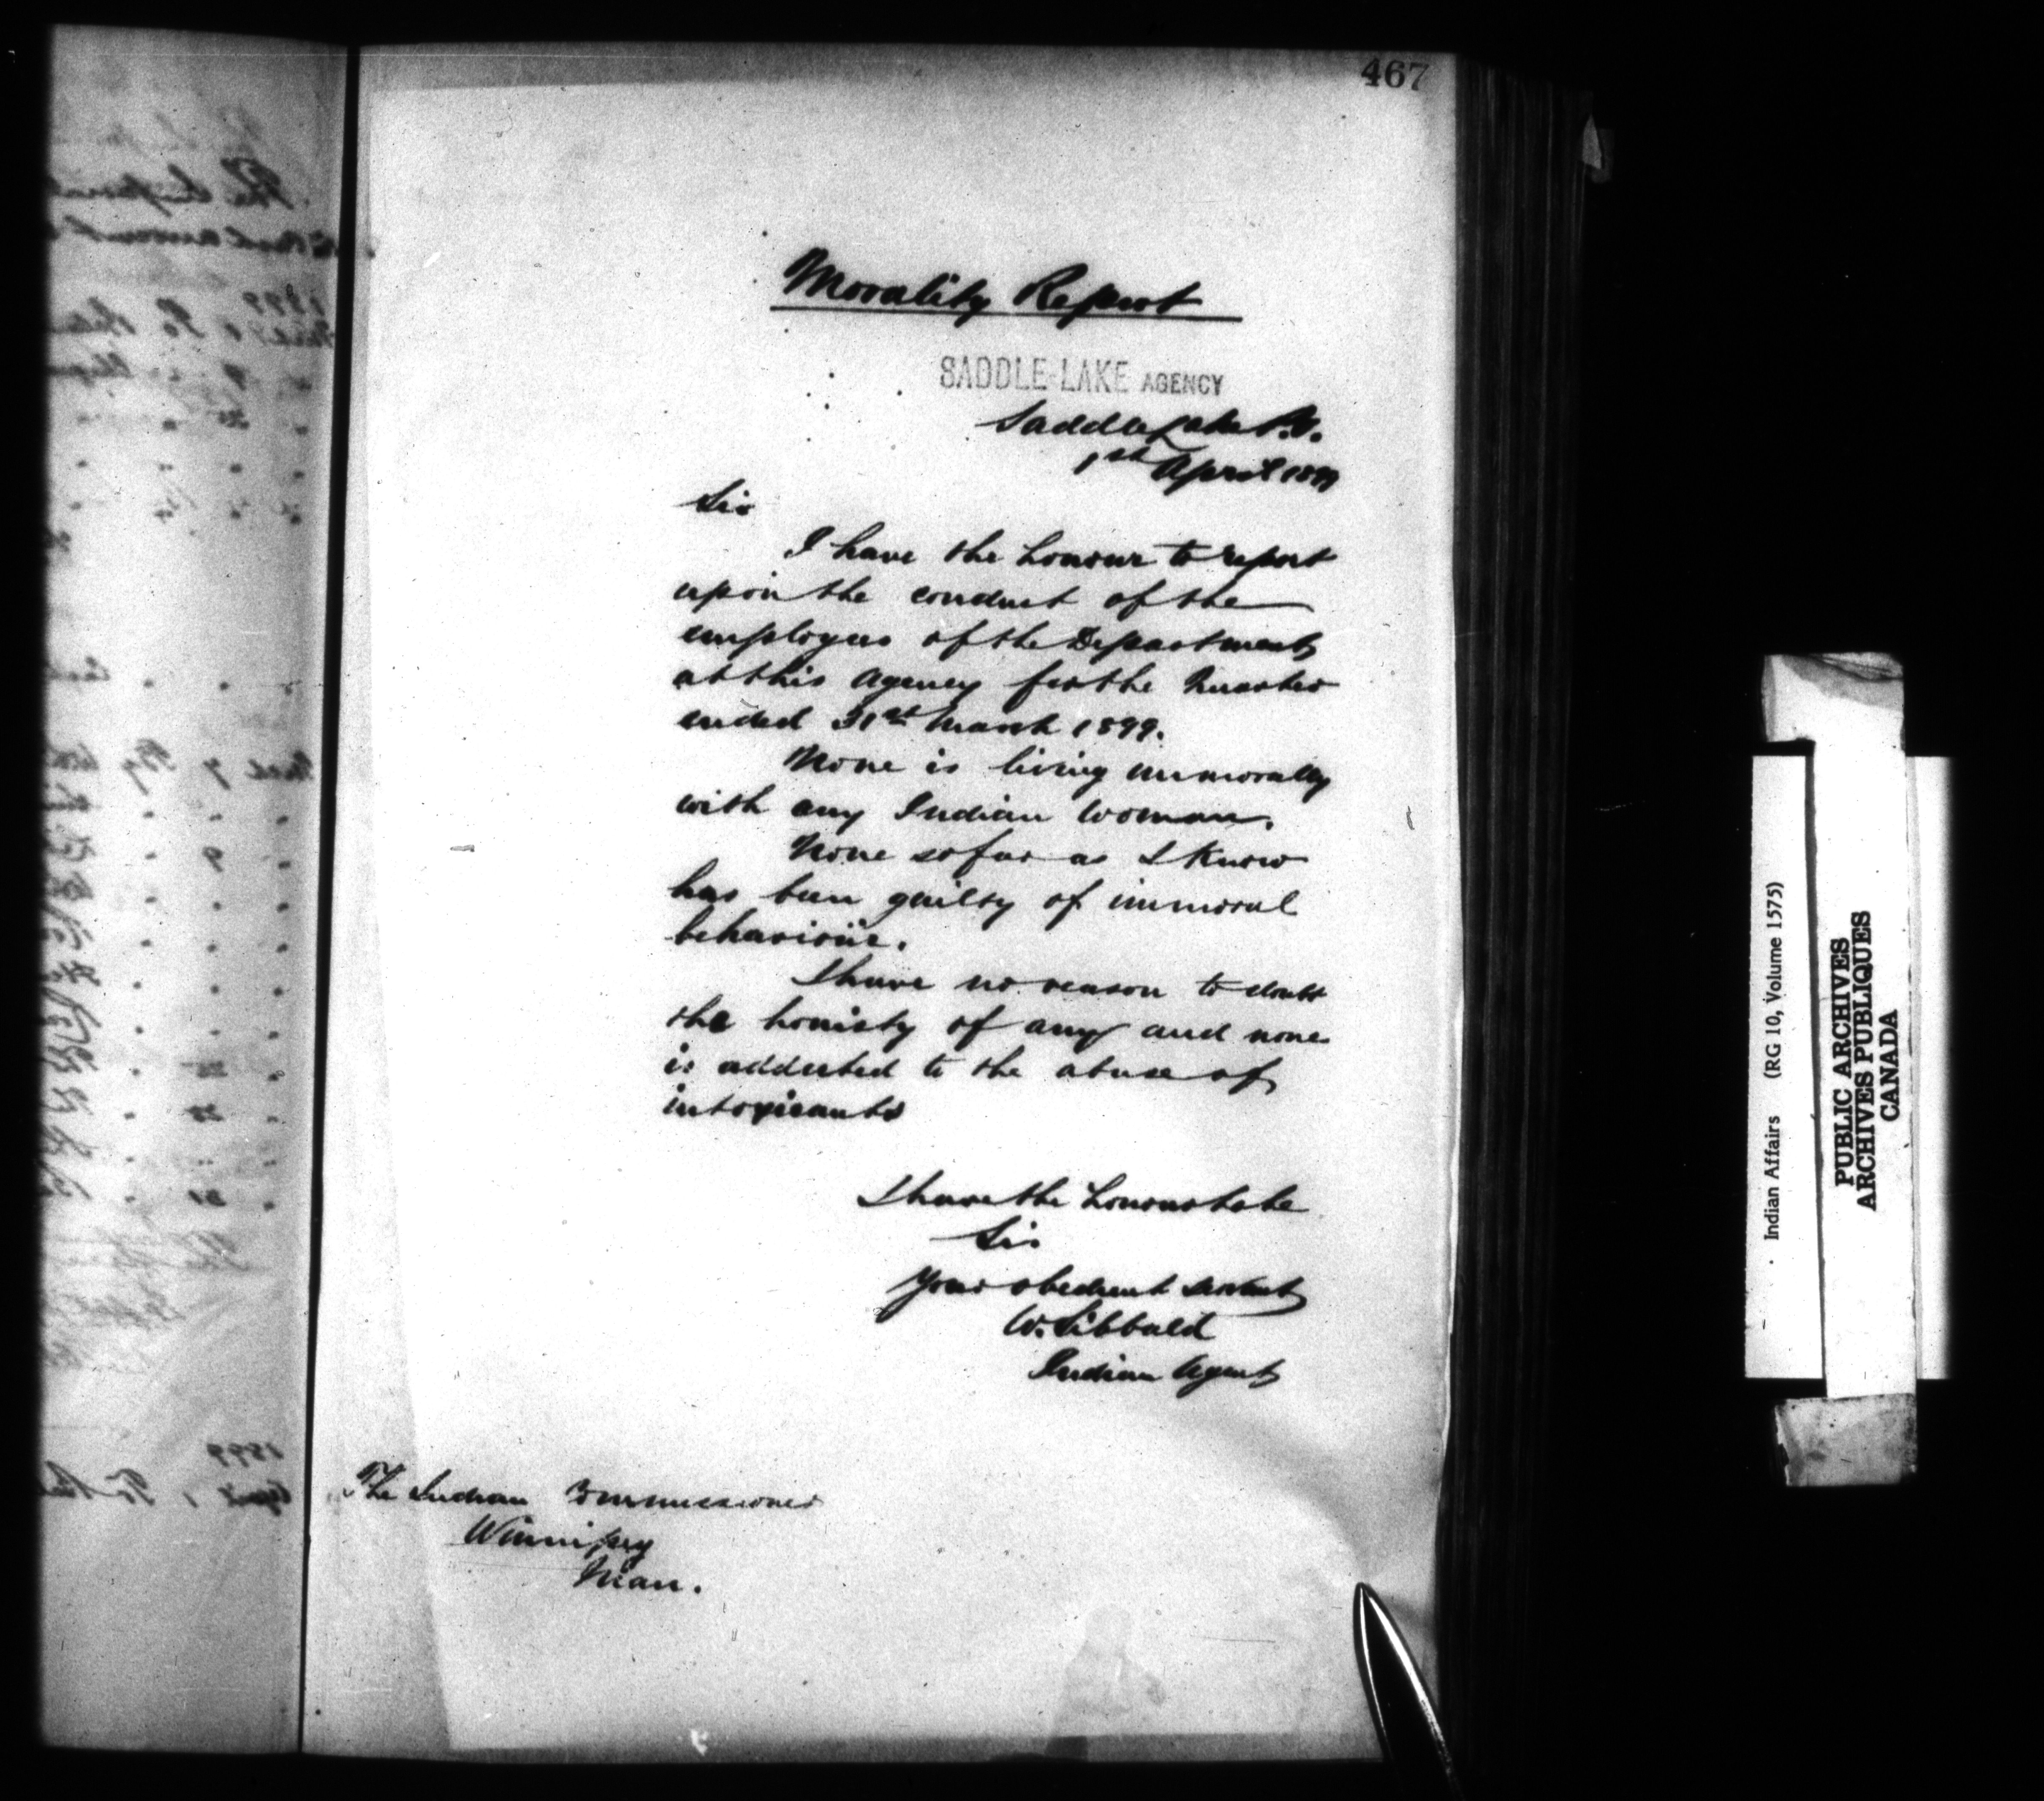 467
Morality Report
SADDLE-LAKE AGENCY
Saddle Lake P.O.
1st April 1899
Sir
I have the honour to report
upon the conduct of the
employees of the Department
at this Agency for the Quarter
ended 31st March 1899.
None is living immorally
with any Indian Woman.
None so far as I know
has been guilty of immoral
behaviour.
I have no reason to doubt
the honesty of any and none
is addicted to the abuse of
intoxicants
I have the honour to be
Sir
Your obedient servant
W. Sibbald
Indian Agent
The Indian Commissioner
Winnipeg
Man.
Indian Affairs (RG 10, Volume 1575)
PUBLIC ARCHIVES
ARCHIVES PUBLIQUES
CANADA